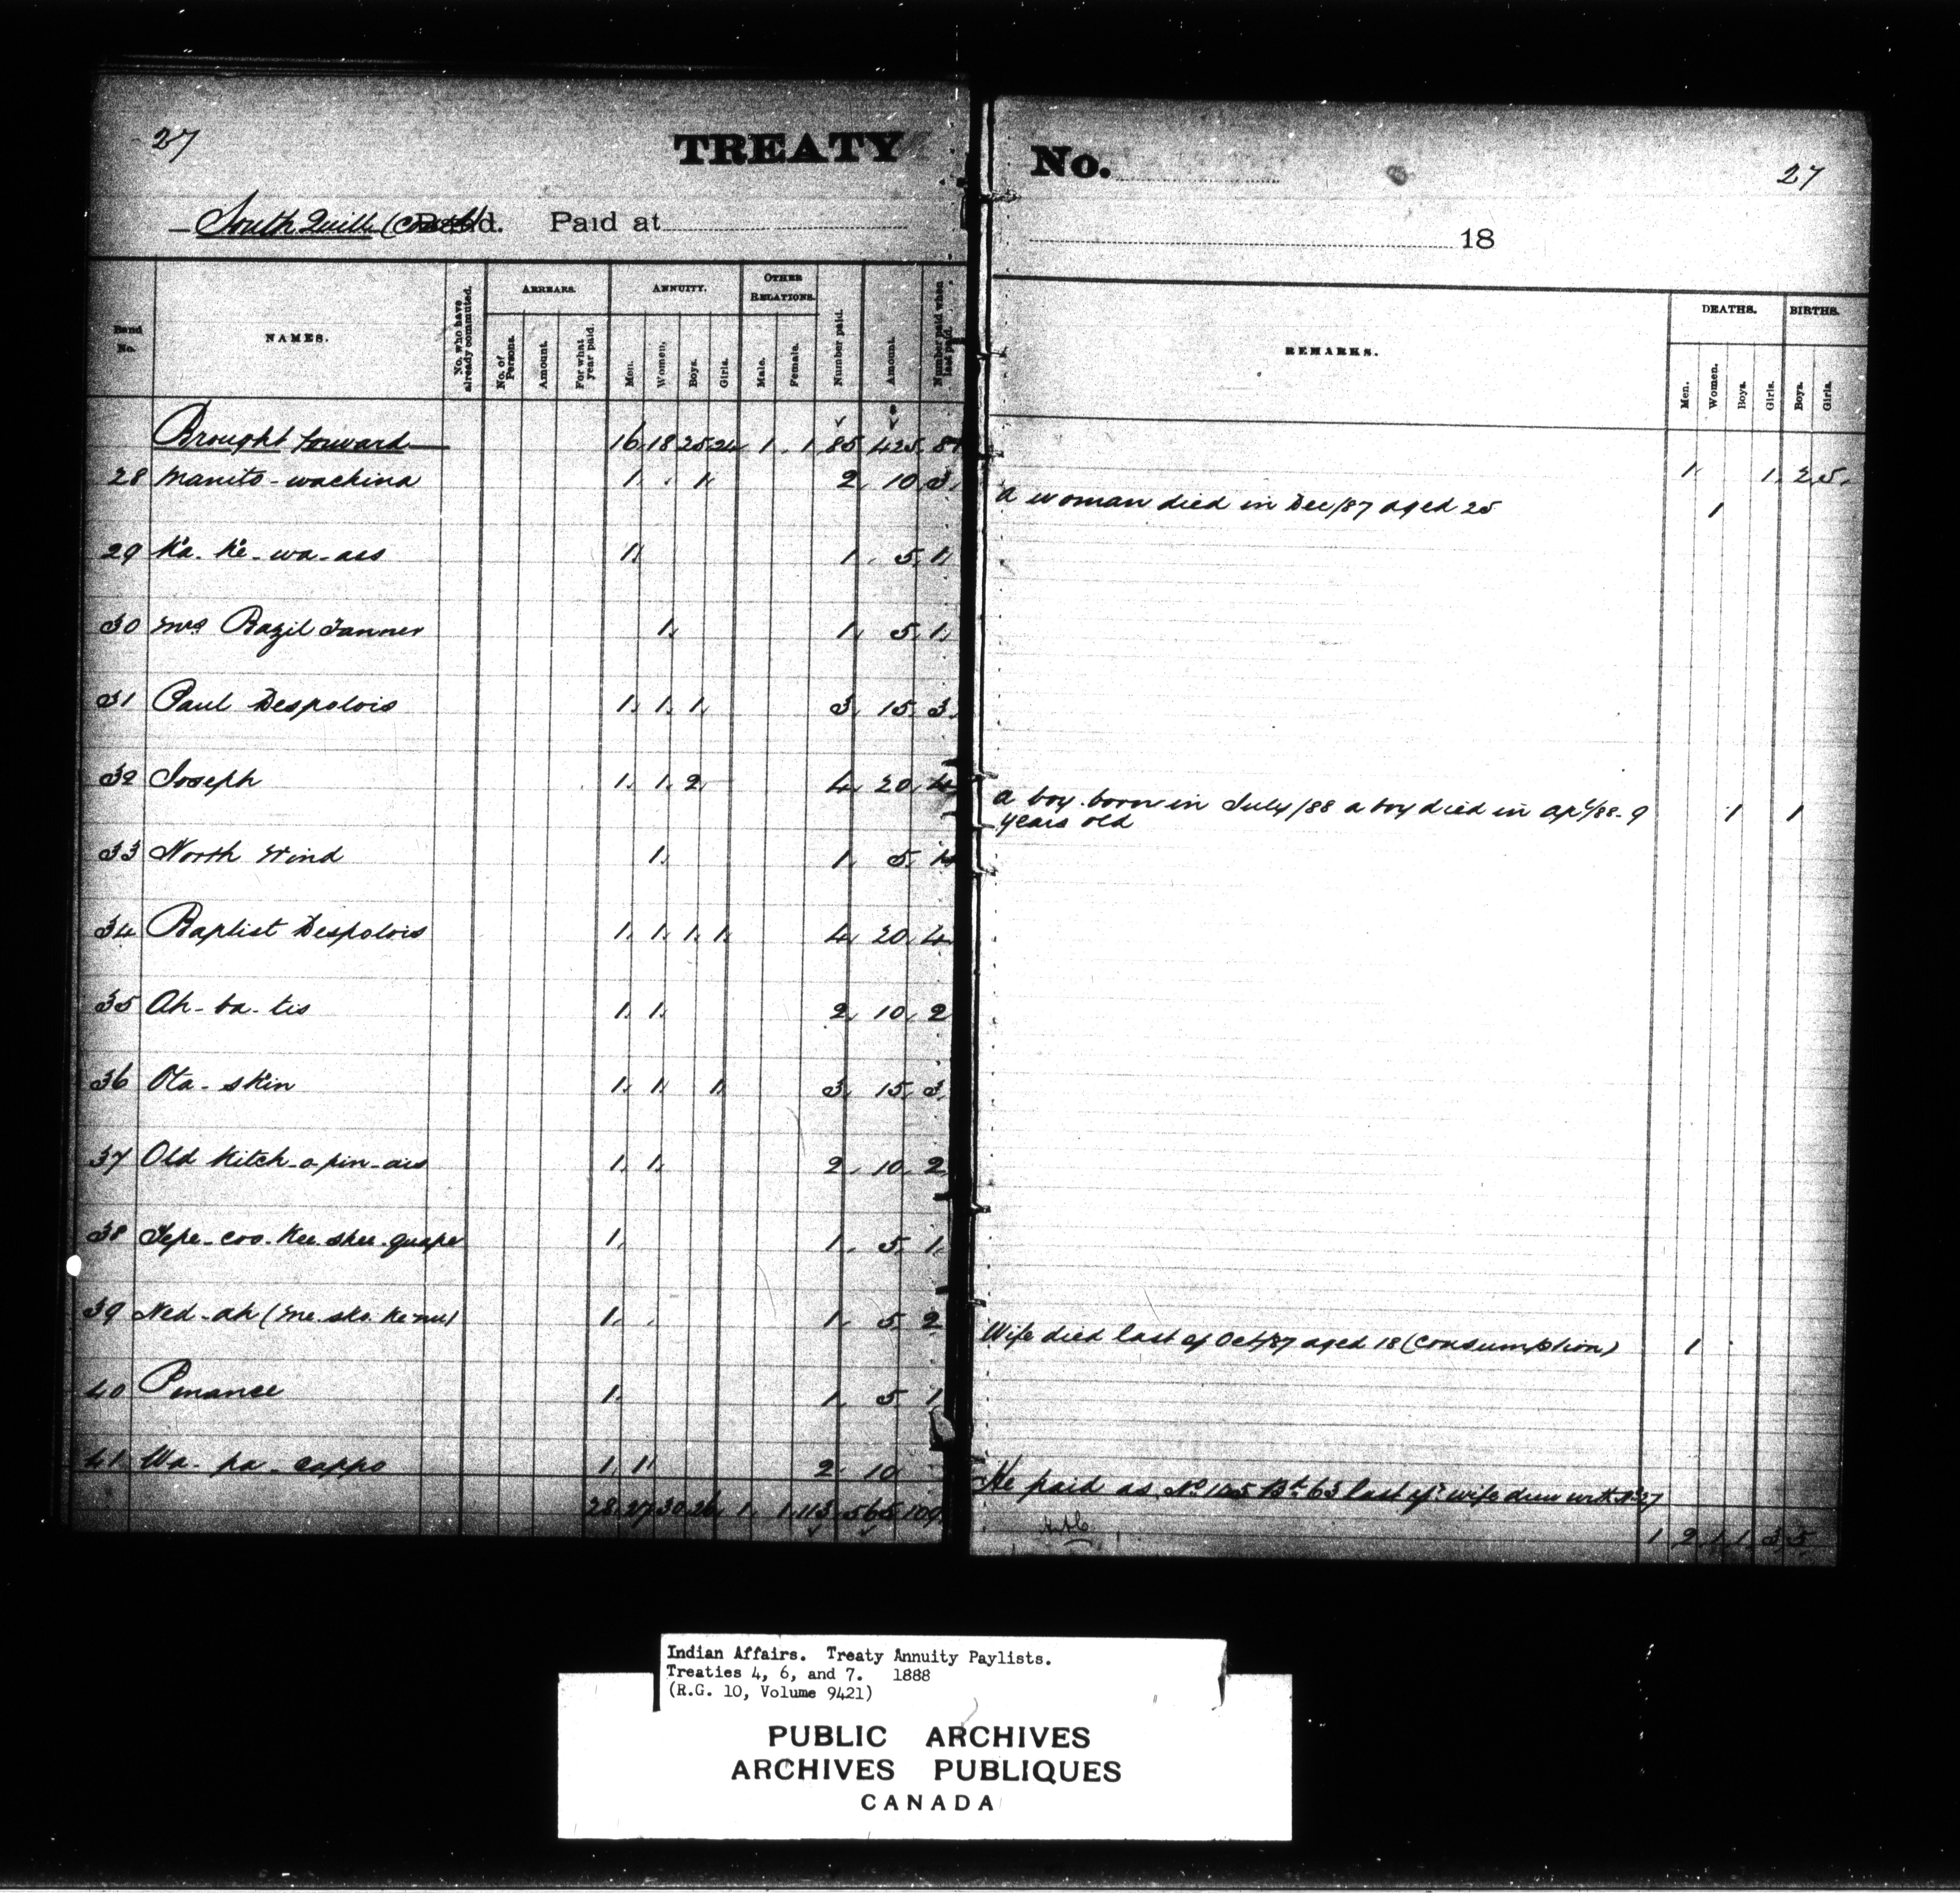 27
TREATY No.
27
South Quill (Cont'd) Band. Paid at
18
Band No.
NAMES.
No. who have already commuted.
ARREARS.
No. of Persons.
Amount.
For what year paid.
ANNUITY.
Men.
Women.
Boys.
Girls.
OTHER RELATIONS.
Male.
Female.
Number paid.
Amount.
Number paid when last paid.
REMARKS.
DEATHS.
Men.
Women.
Boys.
Girls.
BIRTHS.
Boys.
Girls.
Brought forward 16 18 25 24 1 1 85 425 87 1 1 2 5
28 Manito-wachina 1 1 2 10 3 a woman died in Dec/87 aged 25 1
29 Ka-ke-wa-ass 1 1 5 1
30 Mrs Bazil Tanner 1 1 5 1
31 Paul Despolois 1 1 1 3 15 3
32 Joseph 1 1 2 4 20 4 a boy born in July/88 a boy died in Apl/88-9 1 1
years old
33 North Wind 1 1 5 1
34 Baptist Despolois 1 1 1 1 4 20 4
35 Ah-ba-tis 1 1 2 10 2
36 Ota-skin 1 1 1 3 15 3
37 Old Kitch-o-pin-ais 1 1 2 10 2
38 Tepe-coo-kee-shee-quape 1 1 5 1
39 Ned-ah (me-sko-ke-nu) 1 1 5 2 Wife died last of Oct/87 aged 18 (Consumption) 1
40 Penance 1 1 5 1
41 Wa-pa-cappo 1 1 2 10 He paid as No 155 Bd 63 last yr wife drew with No 27
28 27 30 26 1 1 113 565 109 1 2 1 1 3 5
Indian Affairs. Treaty Annuity Paylists.
Treaties 4, 6, and 7. 1888
(R.G. 10, Volume 9421)
PUBLIC ARCHIVES
ARCHIVES PUBLIQUES
CANADA